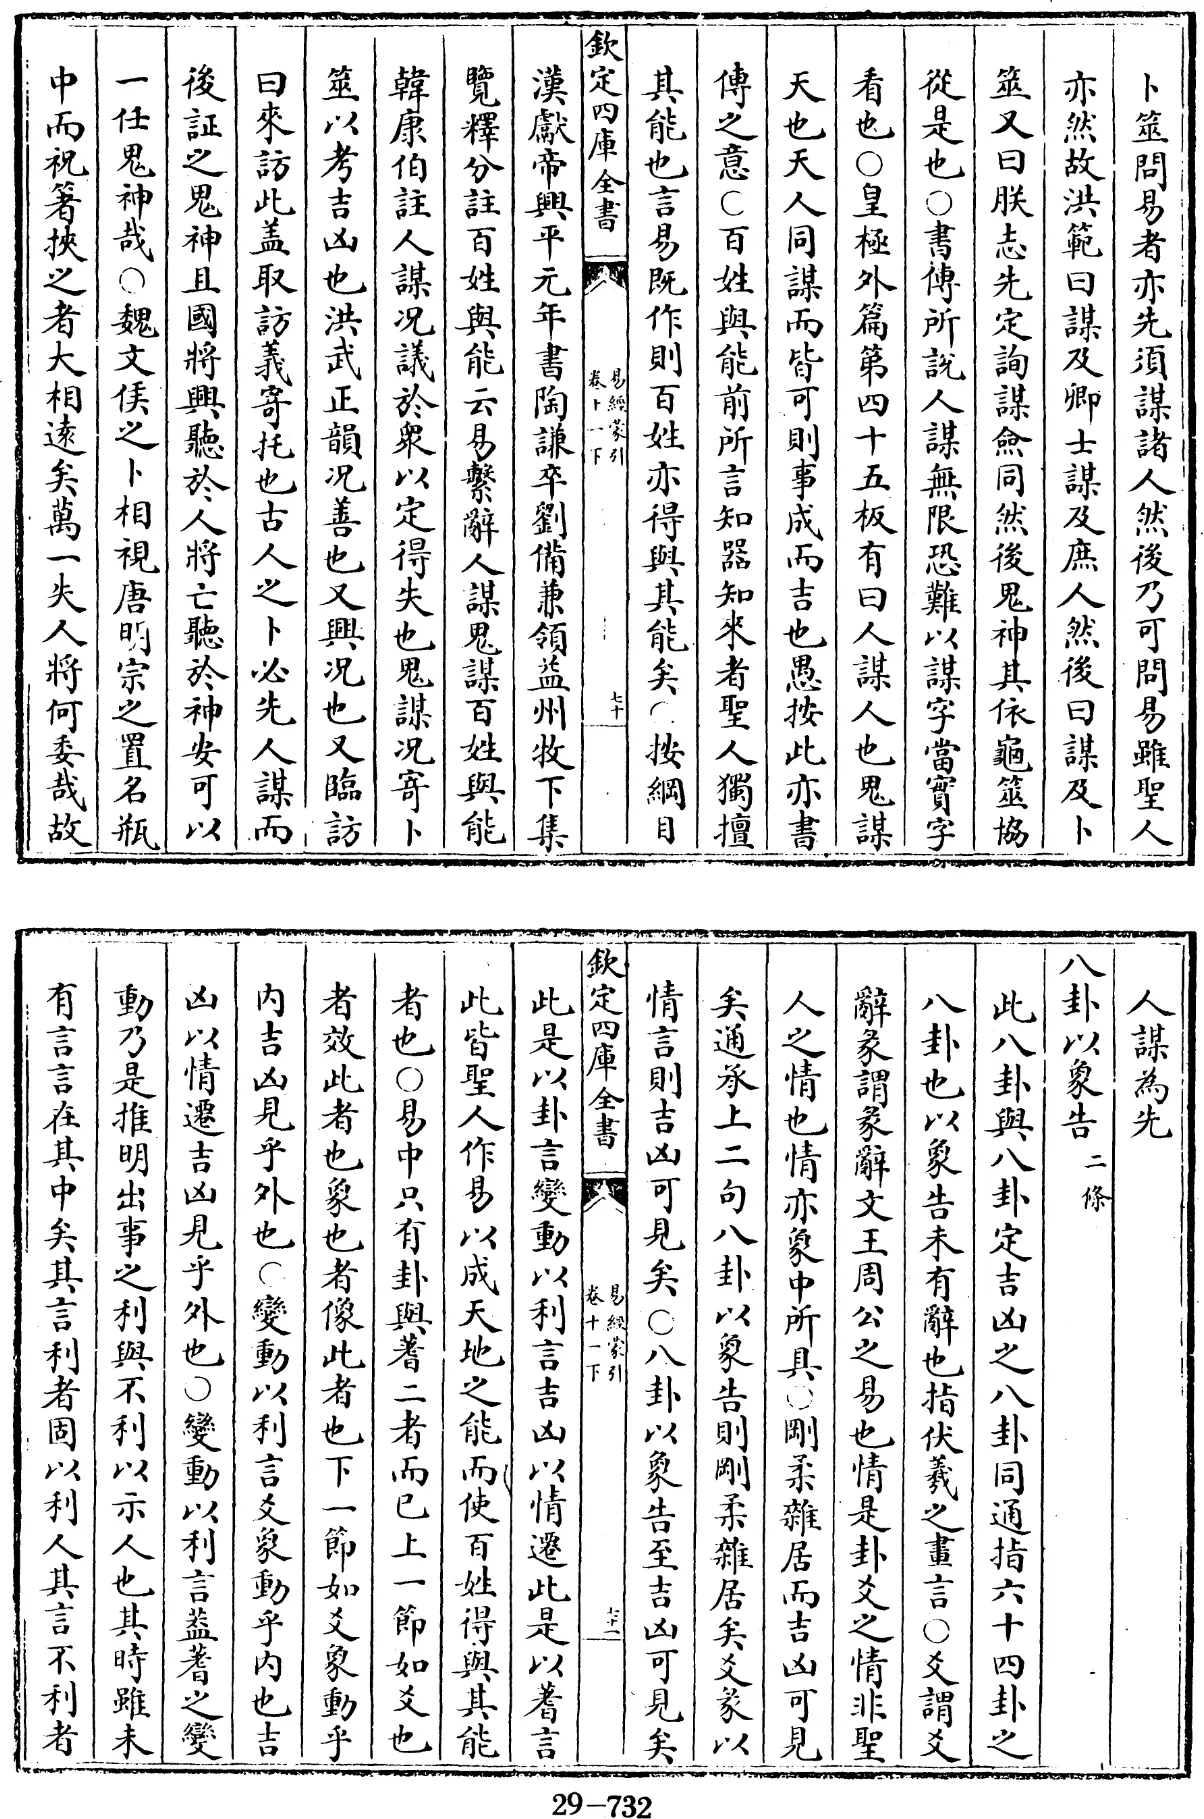 卜筮問易者亦先須謀諸人然後乃可問易雖聖人
亦然故洪範曰謀及卿士謀及庶人然後曰謀及卜
筮又曰朕志先定詢謀僉同然後鬼神其依龜筮協
從是也○書傳所說人謀無限恐難以謀字當實字
看也○皇極外篇第四十五板有曰人謀人也鬼謀
天也天人同謀而皆可則事成而吉也愚按此亦書
傳之意○百姓與能前所言知器知來者聖人獨擅
其能也言易既作則百姓亦得與其能矣○按綱目
欽定四庫全書
易經蒙引
卷十一下
七十
漢獻帝興平元年書陶謙卒劉備兼領益州牧下集
覽釋分註百姓與能云易繫辭人謀鬼謀百姓與能
韓康伯註人謀況議於衆以定得失也鬼謀況寄卜
筮以考吉凶也洪武正韻況善也又興況也又臨訪
曰來訪此盖取訪義寄托也古人之卜必先人謀而
後証之鬼神且國將興聽於人將亡聽於神安可以
一任鬼神哉○魏文侯之卜相視唐明宗之置名瓶
中而祝箸挾之者大相遠矣萬一失人將何委哉故
人謀為先
八卦以象告二條
此八卦與八卦定吉凶之八卦同通指六十四卦之
八卦也以象告未有辭也指伏羲之畫言○爻謂爻
辭彖謂彖辭文王周公之易也情是卦爻之情非聖
人之情也情亦象中所具○剛柔雜居而吉凶可見
矣通承上二句八卦以象告則剛柔雜居矣爻彖以
情言則吉凶可見矣○八卦以象告至吉凶可見矣
欽定四庫全書
易經蒙引
卷十一下
七十一
此是以卦言變動以利言吉凶以情遷此是以蓍言
此皆聖人作易以成天地之能而使百姓得與其能
者也○易中只有卦與蓍二者而已上一節如爻也
者效此者也象也者像此者也下一節如爻象動乎
内吉凶見乎外也○變動以利言爻象動乎内也吉
凶以情遷吉凶見乎外也○變動以利言葢蓍之變
動乃是推明出事之利與不利以示人也其時雖未
有言言在其中矣其言利者固以利人其言不利者
29-732